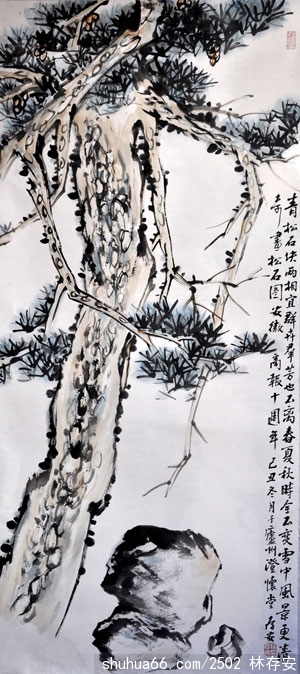 青松石块两相宜群卉羣芳也不离春夏秋时全不变雪中风景更清
奇 画松石图 安徽商报十週年 己丑冬月于廬州澄懷堂 存安
shuhua66.com/2502 林存安